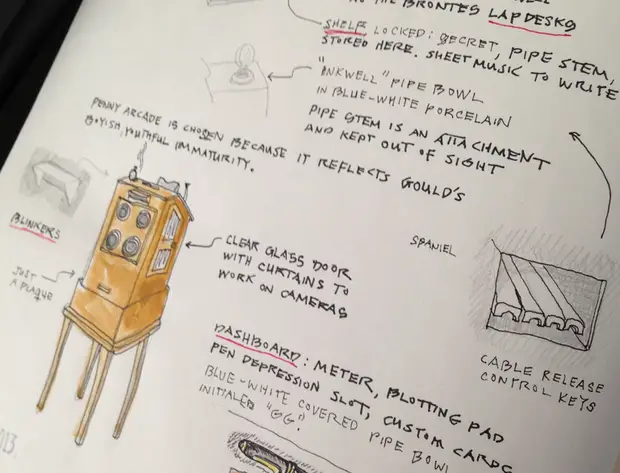 THE BRONTËS LAPDESKS
SHELF, LOCKED: SECRET, PIPE STEM,
STORED HERE. SHEET MUSIC TO WRITE
"INKWELL" PIPE BOWL
IN BLUE-WHITE PORCELAIN
PIPE STEM IS AN ATTACHMENT
AND KEPT OUT OF SIGHT
PENNY ARCADE IS CHOSEN BECAUSE IT REFLECTS GOULD'S
BOYISH, YOUTHFUL IMMATURITY.
BLINKERS
JUST
A PLAQUE
CLEAR GLASS DOOR
WITH CURTAINS TO
WORK ON CAMERAS
SPANIEL
CABLE RELEASE
CONTROL KEYS
DASHBOARD: METER, BLOTTING PAD
PEN DEPRESSION SLOT, CUSTOM CARDS
BLUE-WHITE COVERED PIPE BOWL
INITIALED "GG."
013.